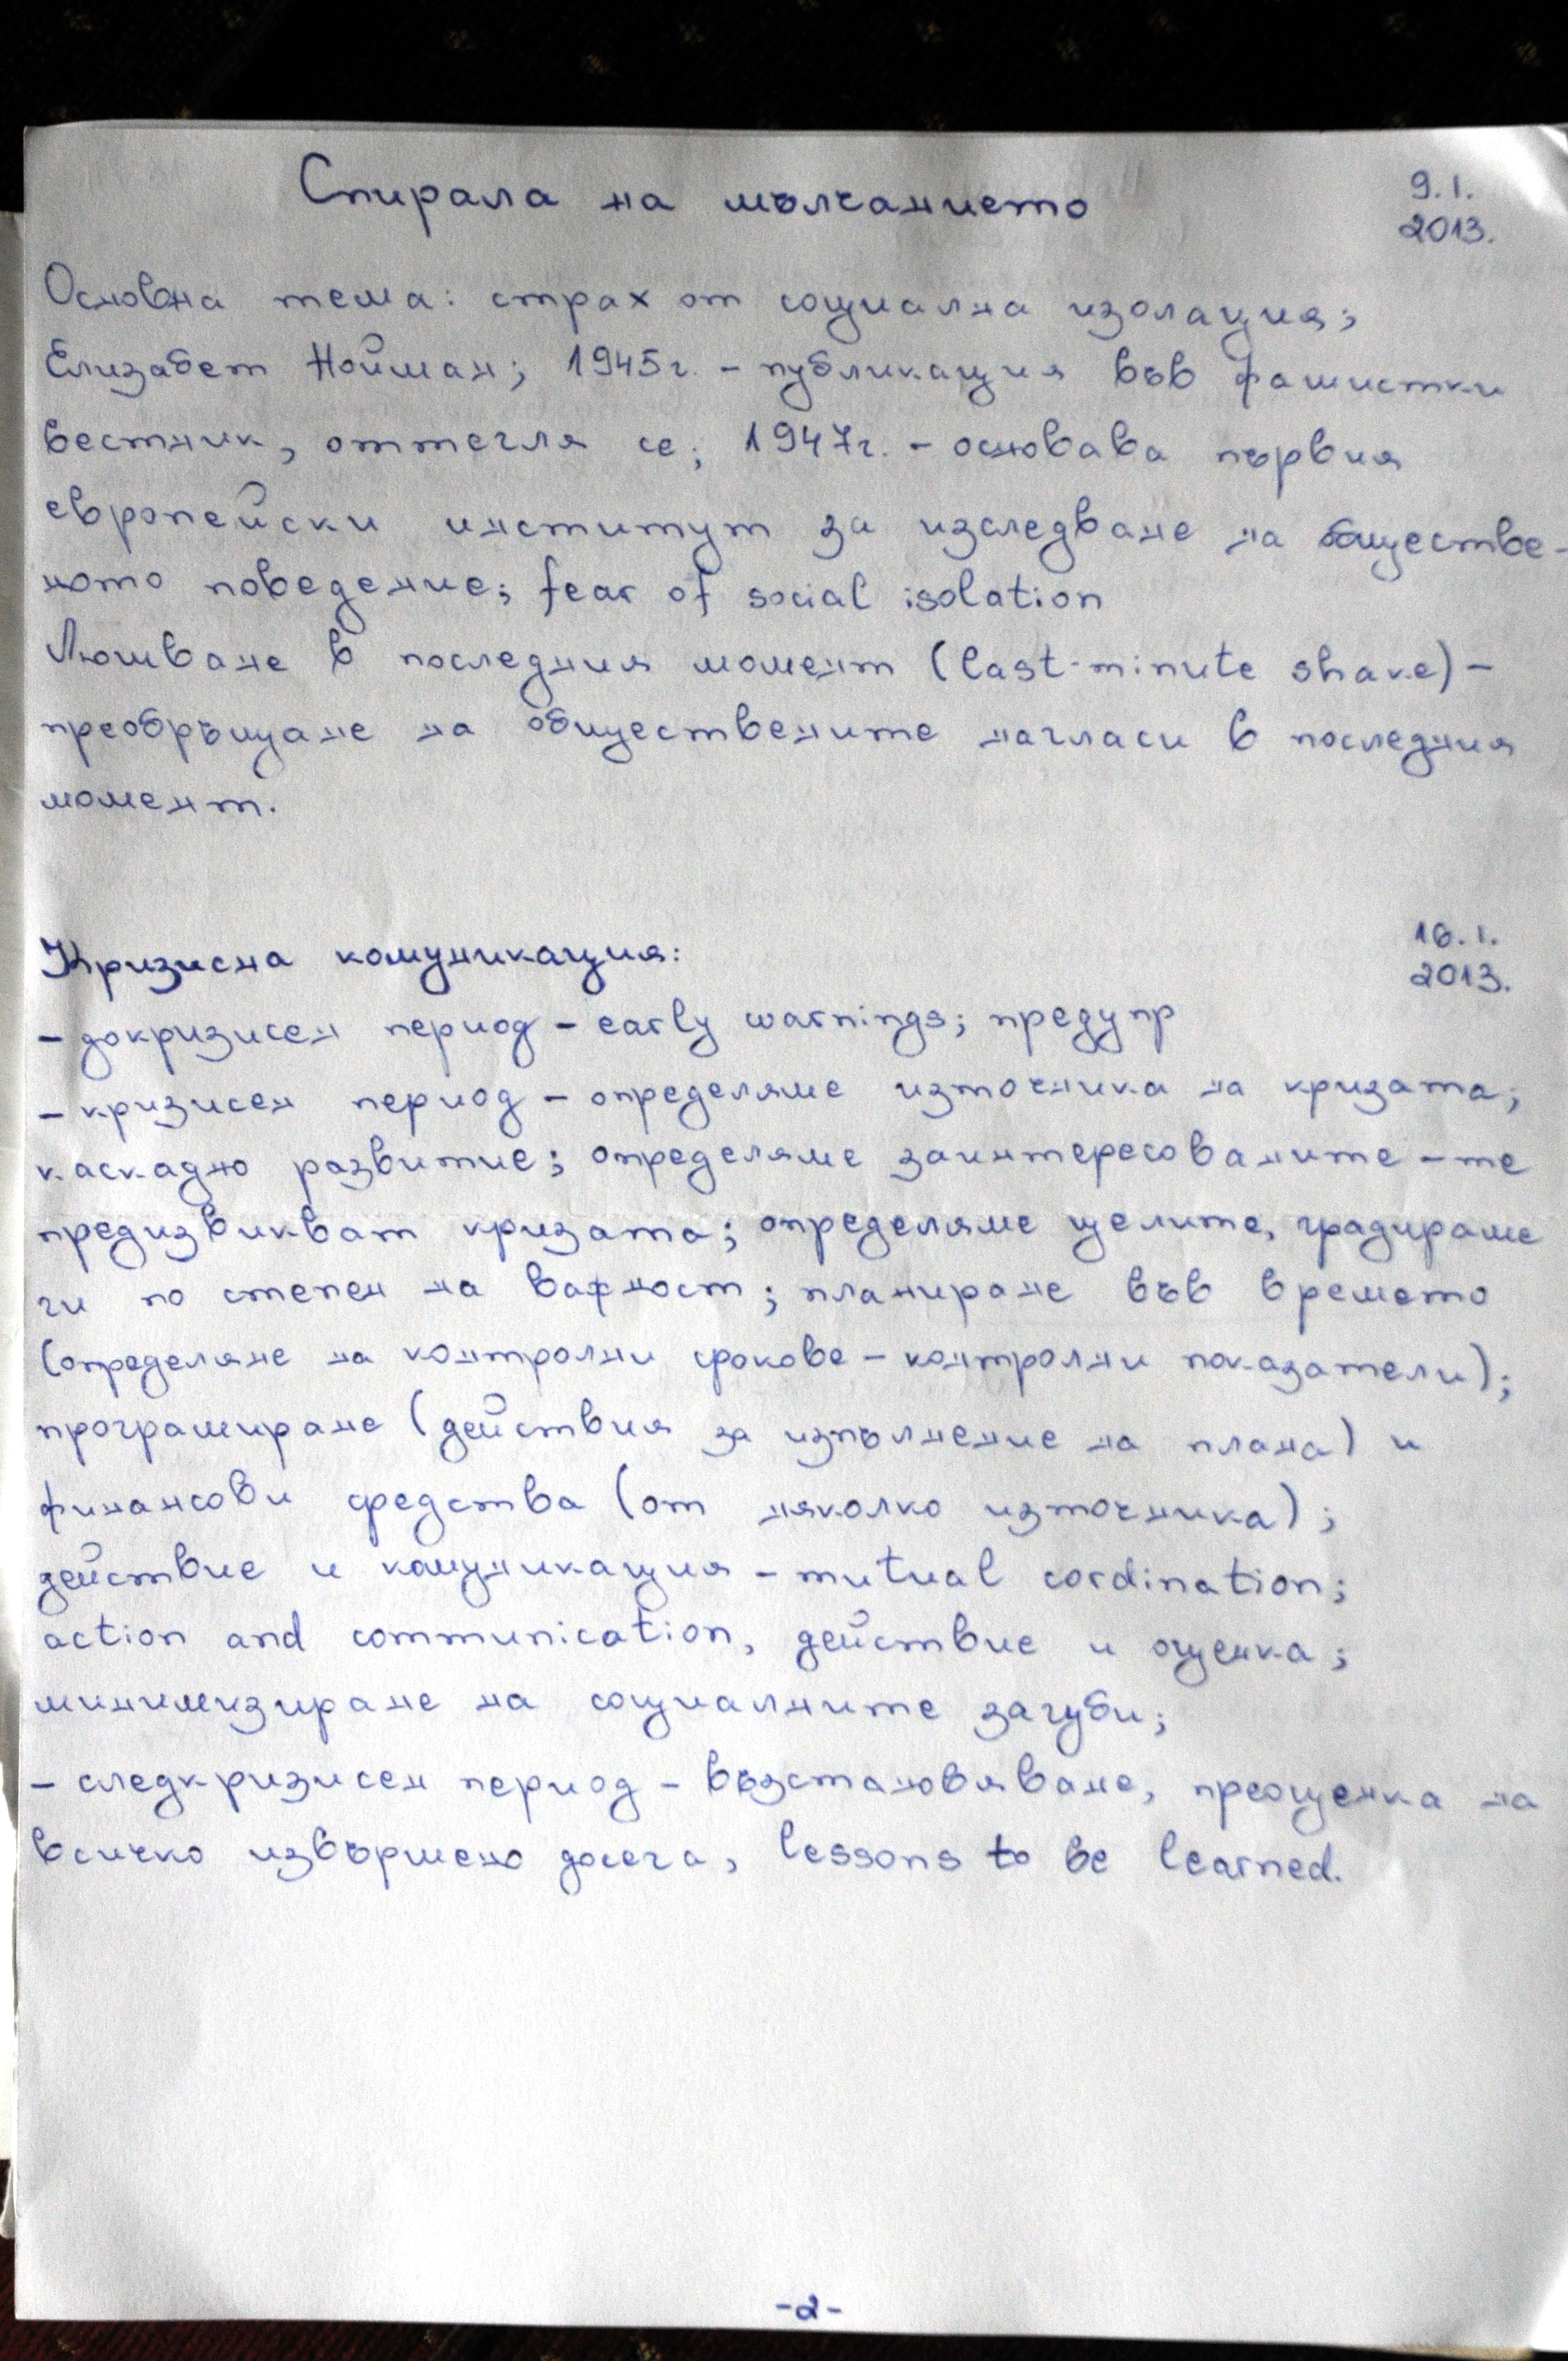 Спирала на мълчанието
9.I.
2013.
Основна тема: страх от социална изолация;
Елизабет Нойман; 1945г. - публикация във фашистки
вестник, оттегля се; 1947г. - основава първия
европейски институт за изследване на обществе-
ното поведение; fear of social isolation
Люшване в последния момент (last-minute shake) -
преобръщане на обществените нагласи в последния
момент.
Кризисна комуникация:
16.I.
2013.
- докризисен период - early warnings; предупр
- кризисен период - определяме източника на кризата;
каскадно развитие; определяме заинтересованите - те
предизвикват кризата; определяме целите, градираме
ги по степен на важност; планиране във времето
(определяне на контролни срокове - контролни показатели);
програмиране (действия за изпълнение на плана) и
финансови средства (от няколко източника);
действие и комуникация - mutual cordination;
action and communication, действие и оценка;
минимизиране на социалните загуби;
- следкризисен период - възстановяване, преоценка на
всичко извършено досега, lessons to be learned.
-2-